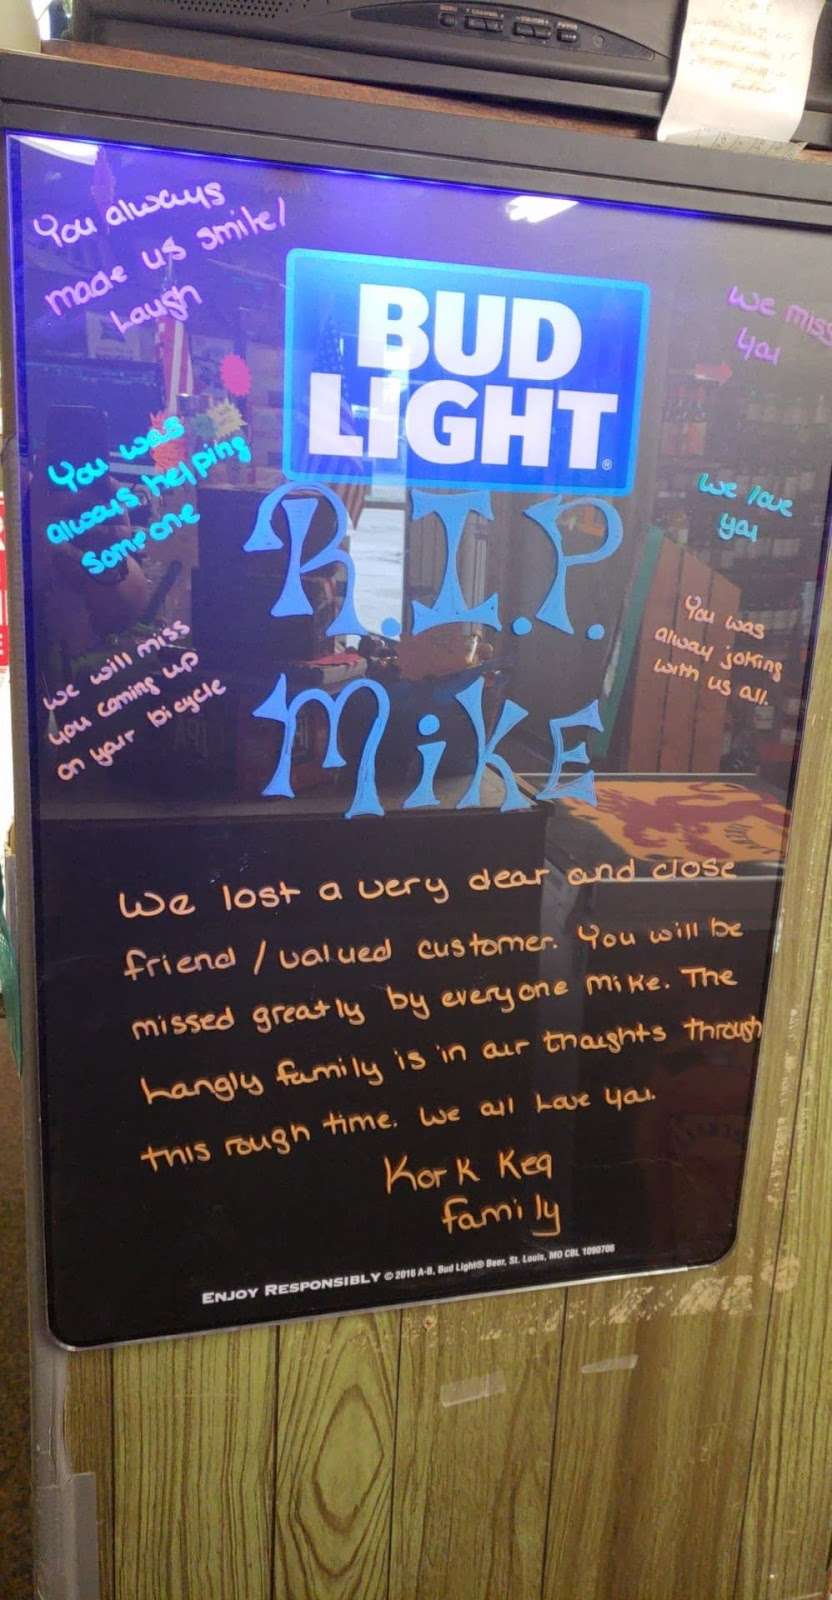 You always
made us smile/
Laugh
BUD
LIGHT
We miss
you
You was
always helping
someone
We love
you
R.I.P.
MiKE
We will miss
you coming up
on your bicycle
You was
alway joking
with us all.
We lost a very dear and close
friend / valued customer. You will be
missed greatly by everyone Mike. The
Langly family is in our thoughts through
this rough time. We all Love you.
Kork Keg
family
ENJOY RESPONSIBLY © 2016 A-B, Bud Light® Beer, St. Louis, MO CBL 1090706